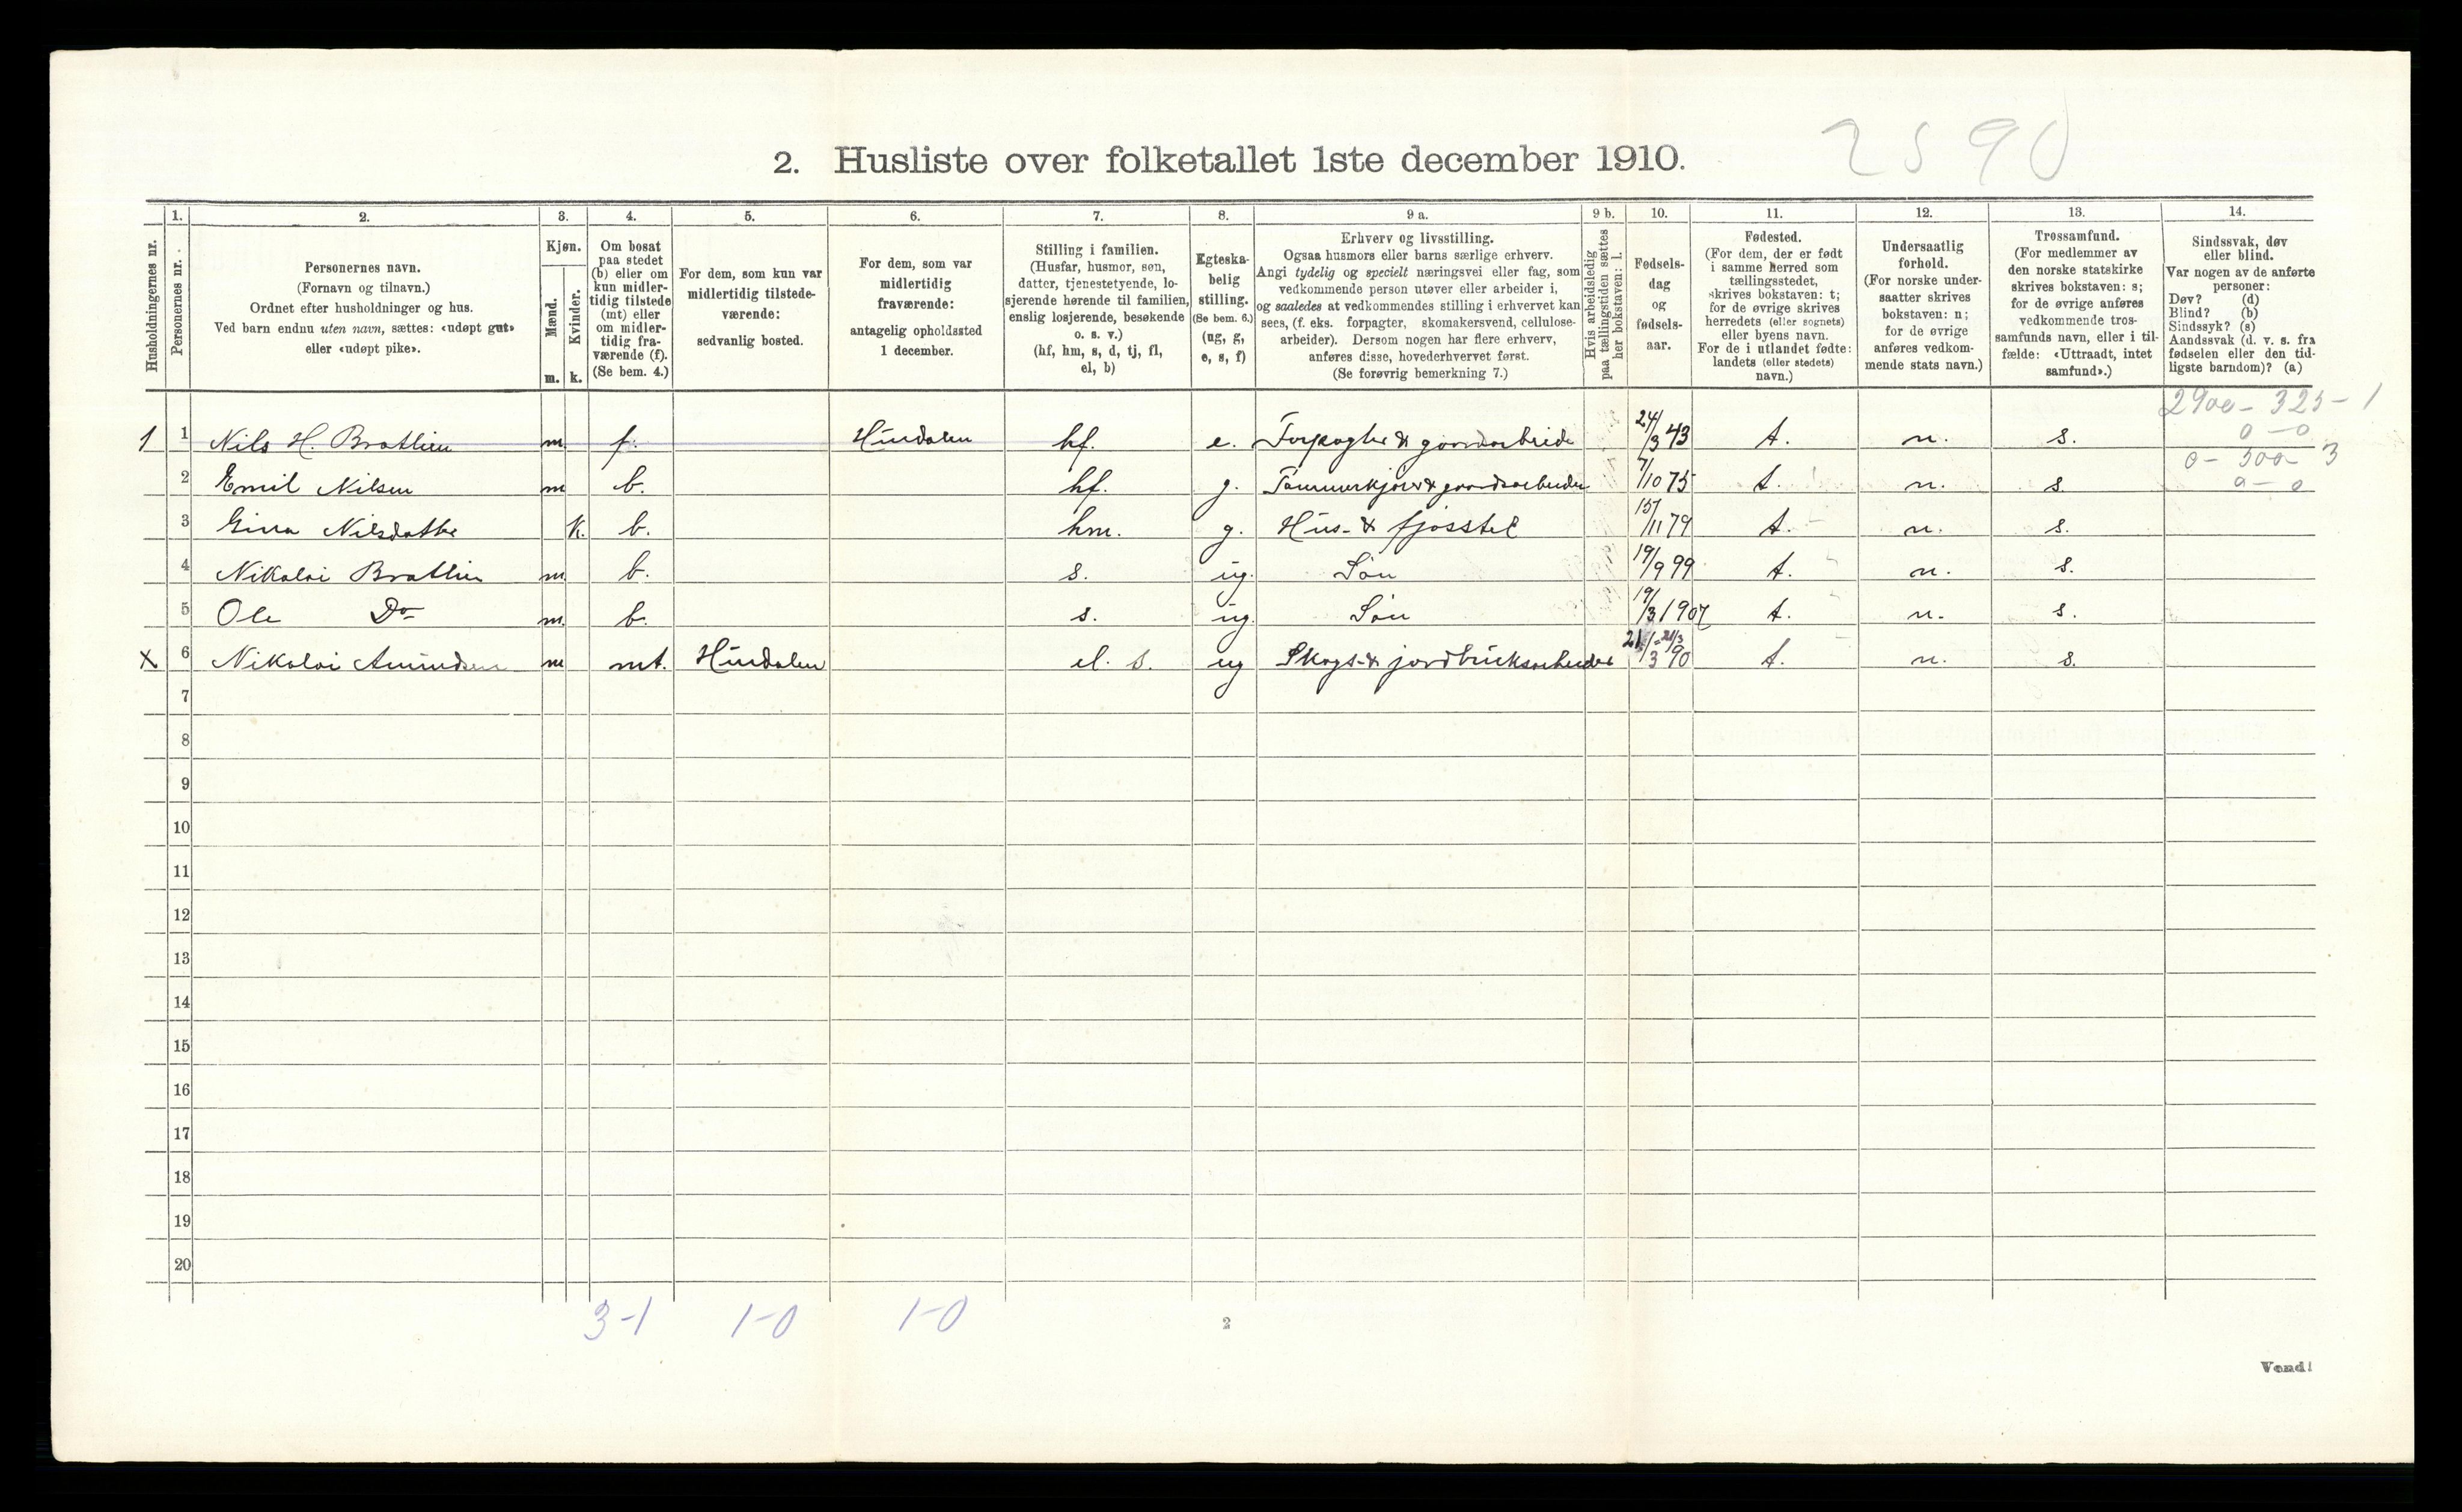 2590
2. Husliste over folketallet 1ste december 1910.
Husholdningernes nr.
1.
Personernes nr.
2.
Personernes navn.
(Fornavn og tilnavn.)
Ordnet efter husholdninger og hus.
Ved barn endnu uten navn, sættes: «udøpt gut»
eller «udøpt pike».
3.
Kjøn.
Mænd.
Kvinder.
m. k.
4.
Om bosat
paa stedet
(b) eller om
kun midler-
tidig tilstede
(mt) eller
om midler-
tidig fra-
værende (f).
(Se bem. 4.)
5.
For dem, som kun var
midlertidig tilstede-
værende:
sedvanlig bosted.
6.
For dem, som var
midlertidig
fraværende:
antagelig opholdssted
1 december.
7.
Stilling i familien.
(Husfar, husmor, søn,
datter, tjenestetyende, lo-
sjerende hørende til familien,
enslig losjerende, besøkende
o. s. v.)
(hf, hm, s, d, tj, fl,
el, b)
8.
Egteska-
belig
stilling.
(Se bem. 6.)
(ug, g,
e, s, f)
9 a.
Erhverv og livsstilling.
Ogsaa husmors eller barns særlige erhverv.
Angi tydelig og specielt næringsvei eller fag, som
vedkommende person utøver eller arbeider i,
og saaledes at vedkommendes stilling i erhvervet kan
sees, (f. eks. forpagter, skomakersvend, cellulose-
arbeider). Dersom nogen har flere erhverv,
anføres disse, hovederhvervet først.
(Se forøvrig bemerkning 7.)
9 b.
Hvis arbeidsledig
paa tællingstiden sættes
her bokstaven: l.
10.
Fødsels-
dag
og
fødsels-
aar.
11.
Fødested.
(For dem, der er født
i samme herred som
tællingsstedet,
skrives bokstaven: t;
for de øvrige skrives
herredets (eller sognets)
eller byens navn.
For de i utlandet fødte:
landets (eller stedets)
navn.)
12.
Undersaatlig
forhold.
(For norske under-
saatter skrives
bokstaven: n;
for de øvrige
anføres vedkom-
mende stats navn.)
13.
Trossamfund.
(For medlemmer av
den norske statskirke
skrives bokstaven: s;
for de øvrige anføres
vedkommende tros-
samfunds navn, eller i til-
fælde: «Uttraadt, intet
samfund».)
14.
Sindssvak, døv
eller blind.
Var nogen av de anførte
personer:
Døv? (d)
Blind? (b)
Sindssyk? (s)
Aandssvak (d. v. s. fra
fødselen eller den tid-
ligste barndom)? (a)
2900 - 325 - 1
0 - 0
1 1 Nils H. Bratlien m. f. Hurdalen hf. e. Forpagter & gaardarbeide 24/3 43 t. n. s.
0 - 300 3
0 - 0
2 Emil Nilsen m b. hf. g. Tømmerkjører & gaardsarbeider 7/10 75 t. n. s.
3 Gina Nilsdatter k. b. hm. g. Hus- & fjøsstel 15/11 79 t. n. s.
4 Nikolai Bratlien m. b. s. ug. Søn 19/9 99 t. n. s.
5 Ole Do m. b. s. ug. Søn 19/3 1907 t. n. s.
x 6 Nikolai Amundsen m mt. Hurdalen el. s. ug Skogs- & jordbruksarbeider 21/3 90 t. n. s.
7
8
9
10
11
12
13
14
15
16
17
18
19
20
3-1 1-0 1-0
2
Vend!